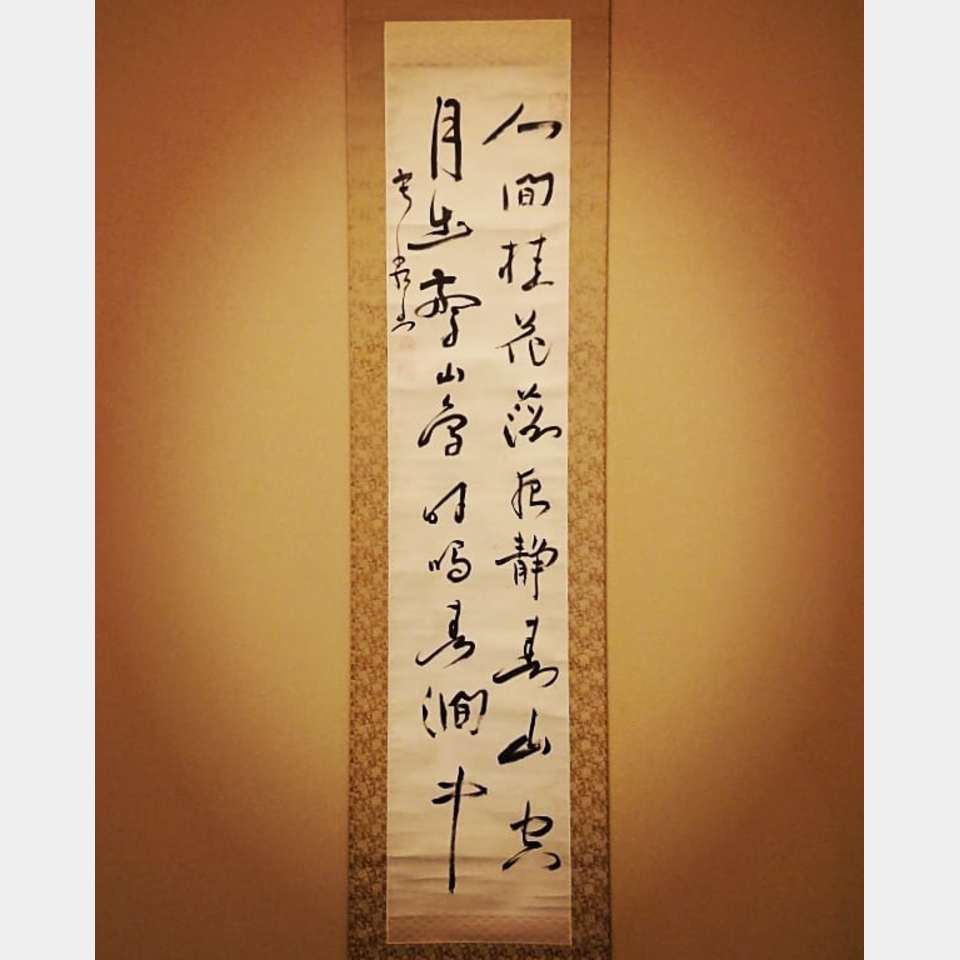 人間桂花落夜静春山空
月出驚山鳥時鳴春澗中